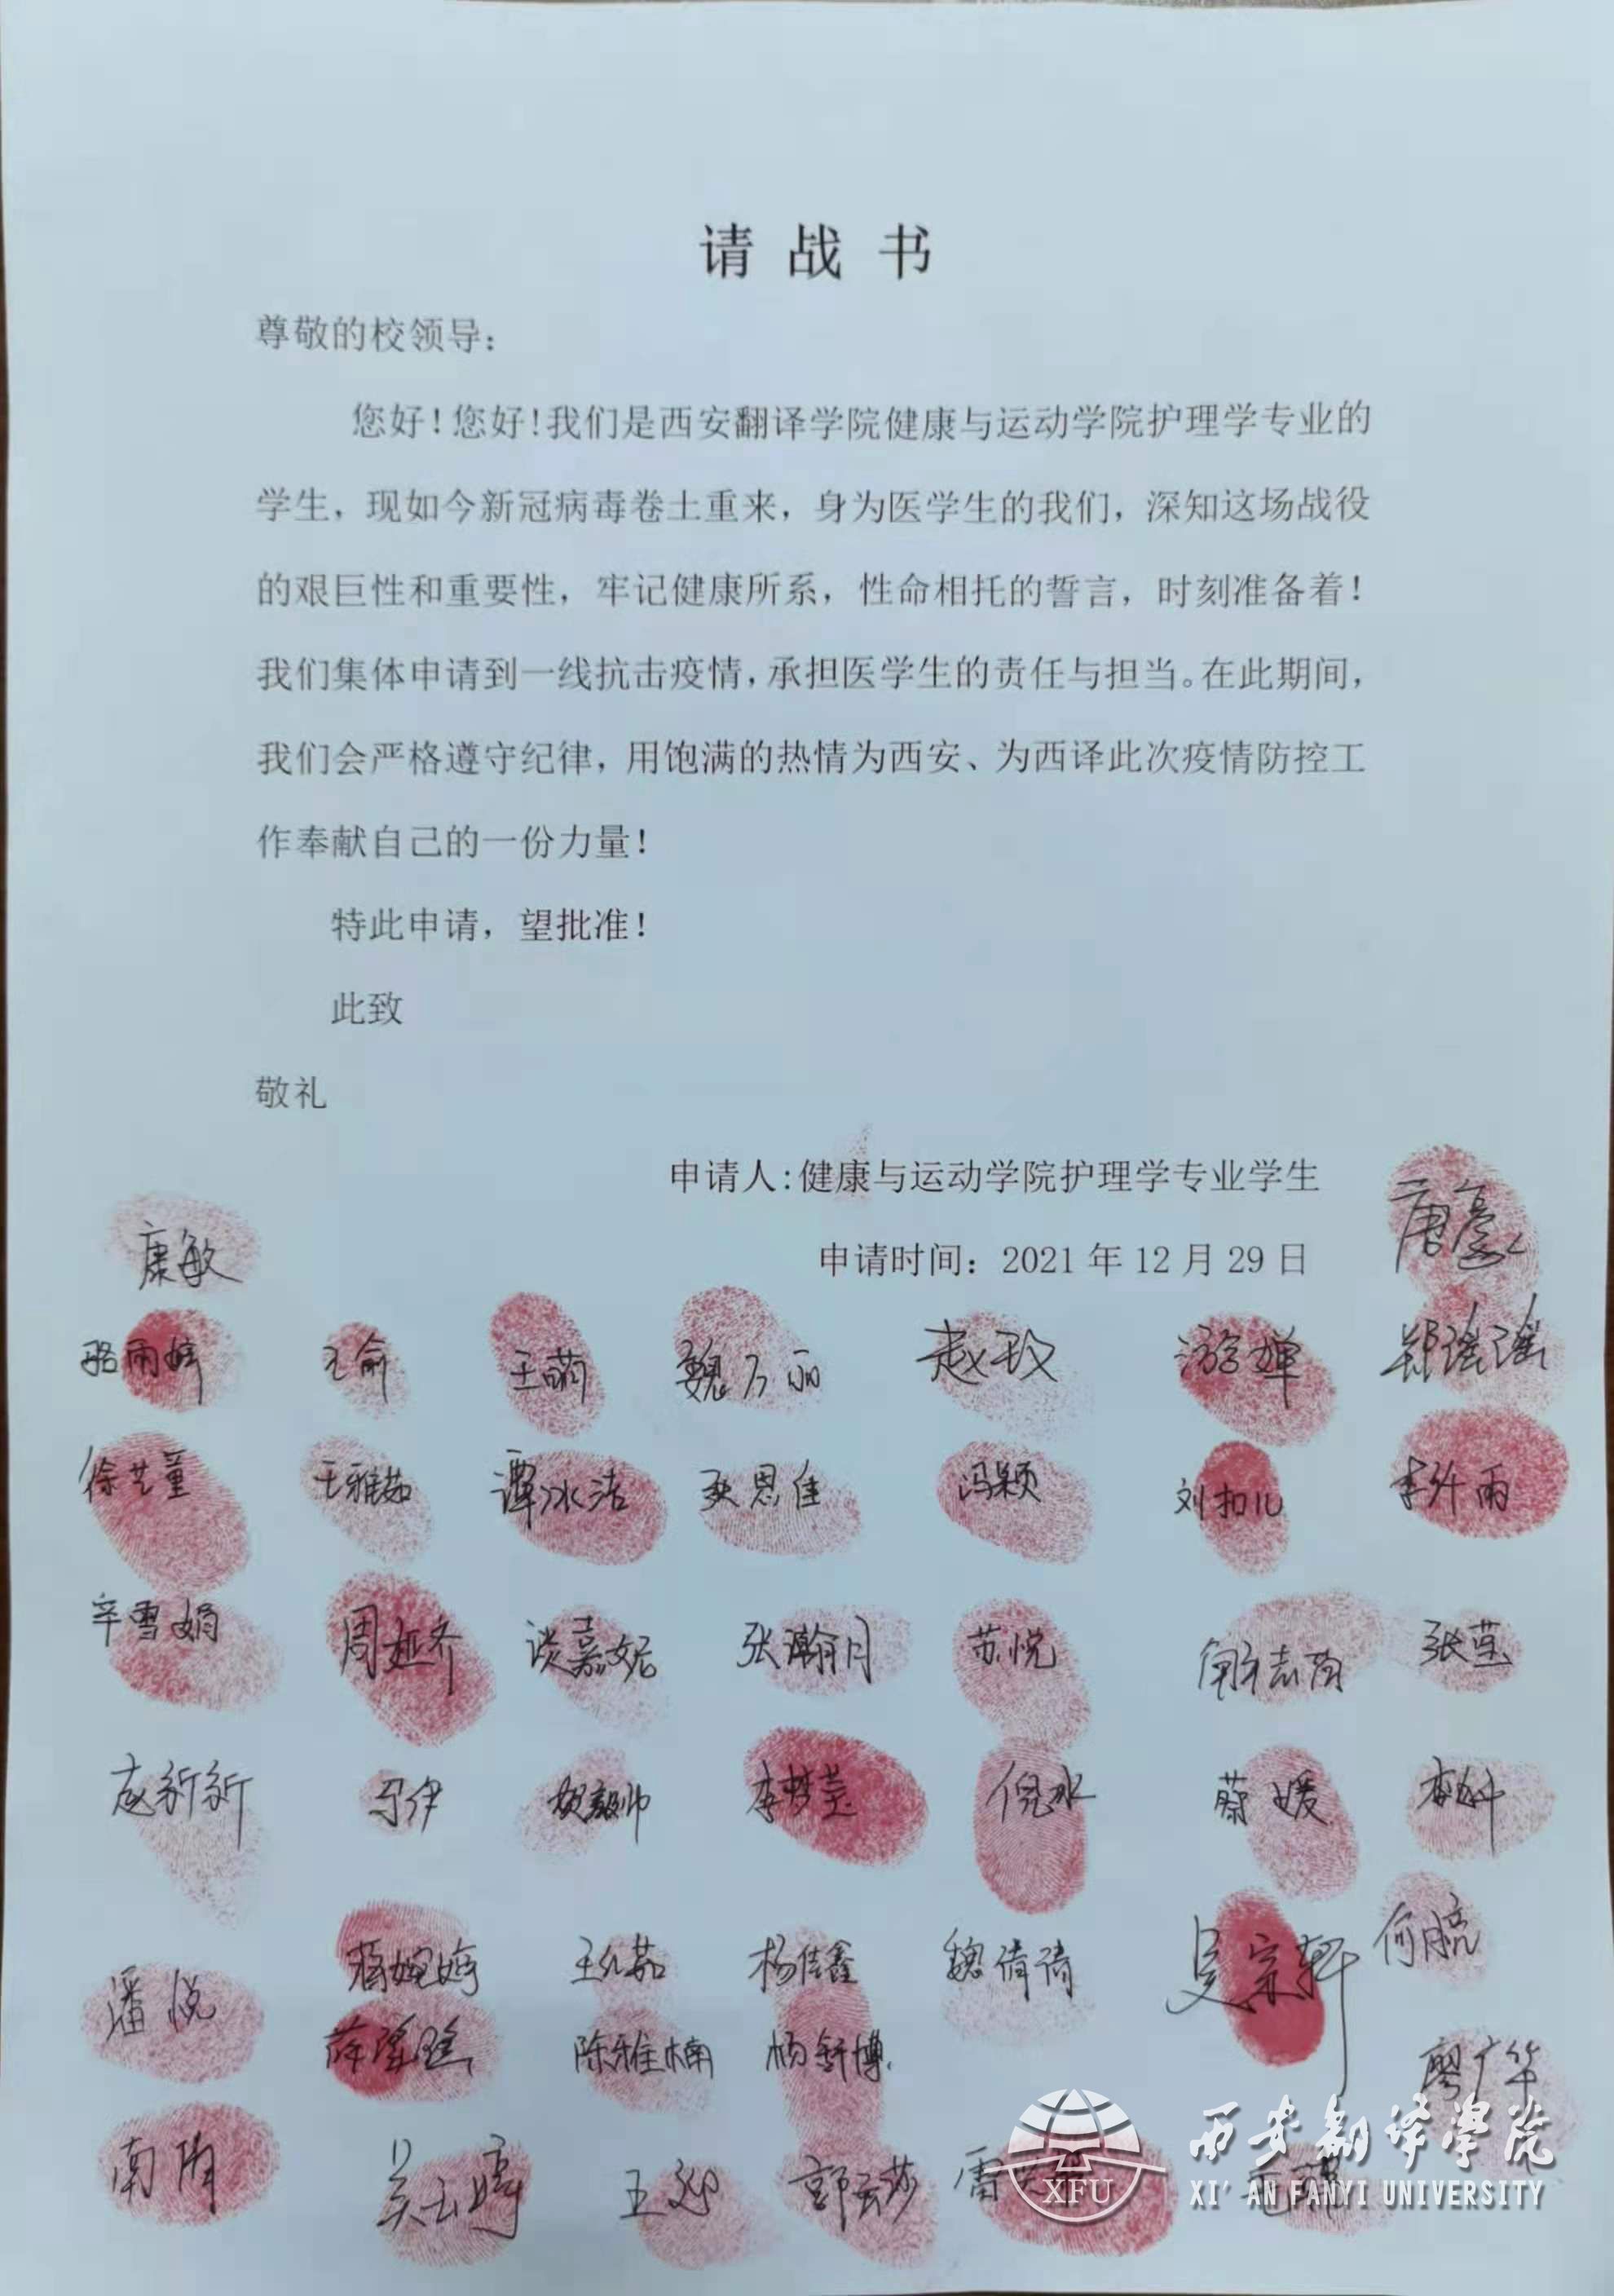 请战书
尊敬的校领导：
您好！您好！我们是西安翻译学院健康与运动学院护理学专业的
学生，现如今新冠病毒卷土重来，身为医学生的我们，深知这场战役
的艰巨性和重要性，牢记健康所系，性命相托的誓言，时刻准备着！
我们集体申请到一线抗击疫情，承担医学生的责任与担当。在此期间，
我们会严格遵守纪律，用饱满的热情为西安、为西译此次疫情防控工
作奉献自己的一份力量！
特此申请，望批准！
此致
敬礼
申请人：健康与运动学院护理学专业学生
申请时间：2021年12月29日
康敏 唐豪
骆雨婷 王俞 王萌 魏万丽 赵玫 游婵 郑瑶瑶
徐艺董 王雅茹 谭冰洁 耿恩佳 冯颖 刘扣儿
辛雪娟 周娅齐 谈嘉妮 张瀚月 苏悦 张莹
赵新新 马伊 贺毅帅 李梦莹 倪水 蔡媛
潘悦 杨佳鑫 魏倩倩 吴宗轩 何航
陈雅楠 杨舒博 廖广华
南阳 郭云莎
西安翻译学院
XFU XI' AN FANYI UNIVERSITY